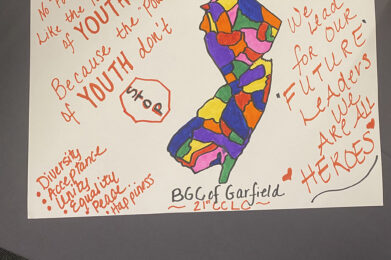 No Po
Like the
of YOUTH
Because the Po
of YOUTH don't
STOP
• Diversity
• Acceptance
• Unity
• Equality
• Peace
• Happiness
BGC of Garfield
~ 21st CCLC ~
We Lead
for OUR
"FUTURE"
Leaders
We
ARE All
HEROES